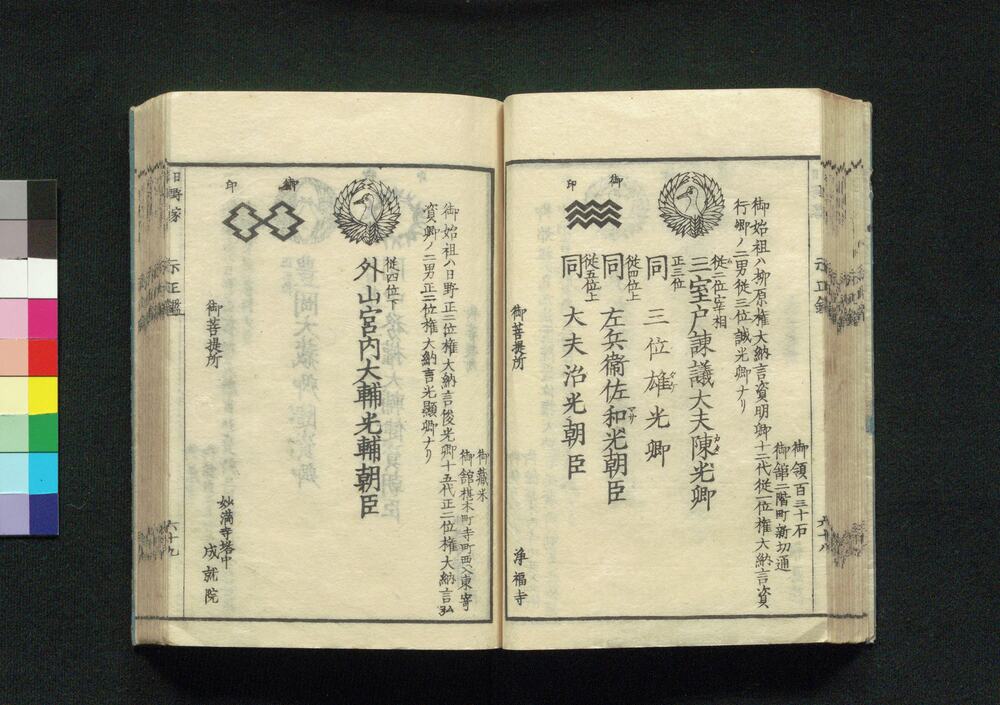 御始祖ハ柳原権大納言資明卿十二代従一位権大納言資
行卿ノ二男従三位誠光卿ナリ
御領百三十石
御館二階町新切通
従三位宰相
三室戸諌議大夫陳光卿
正三位
同 三位雄光卿
従四位上
同 左兵衛佐和光朝臣
従五位上
同 大夫治光朝臣
御印
御菩提所 浄福寺
六十八
御蔵米
御館椹木町寺町西入東寄
御始祖ハ日野正二位権大納言俊光卿十五代正二位権大納言弘
資卿ノ二男正二位権大納言光顕卿ナリ
従四位下
外山宮内大輔光輔朝臣
御印
御菩提所 妙満寺塔中
成就院
日野家
六十九